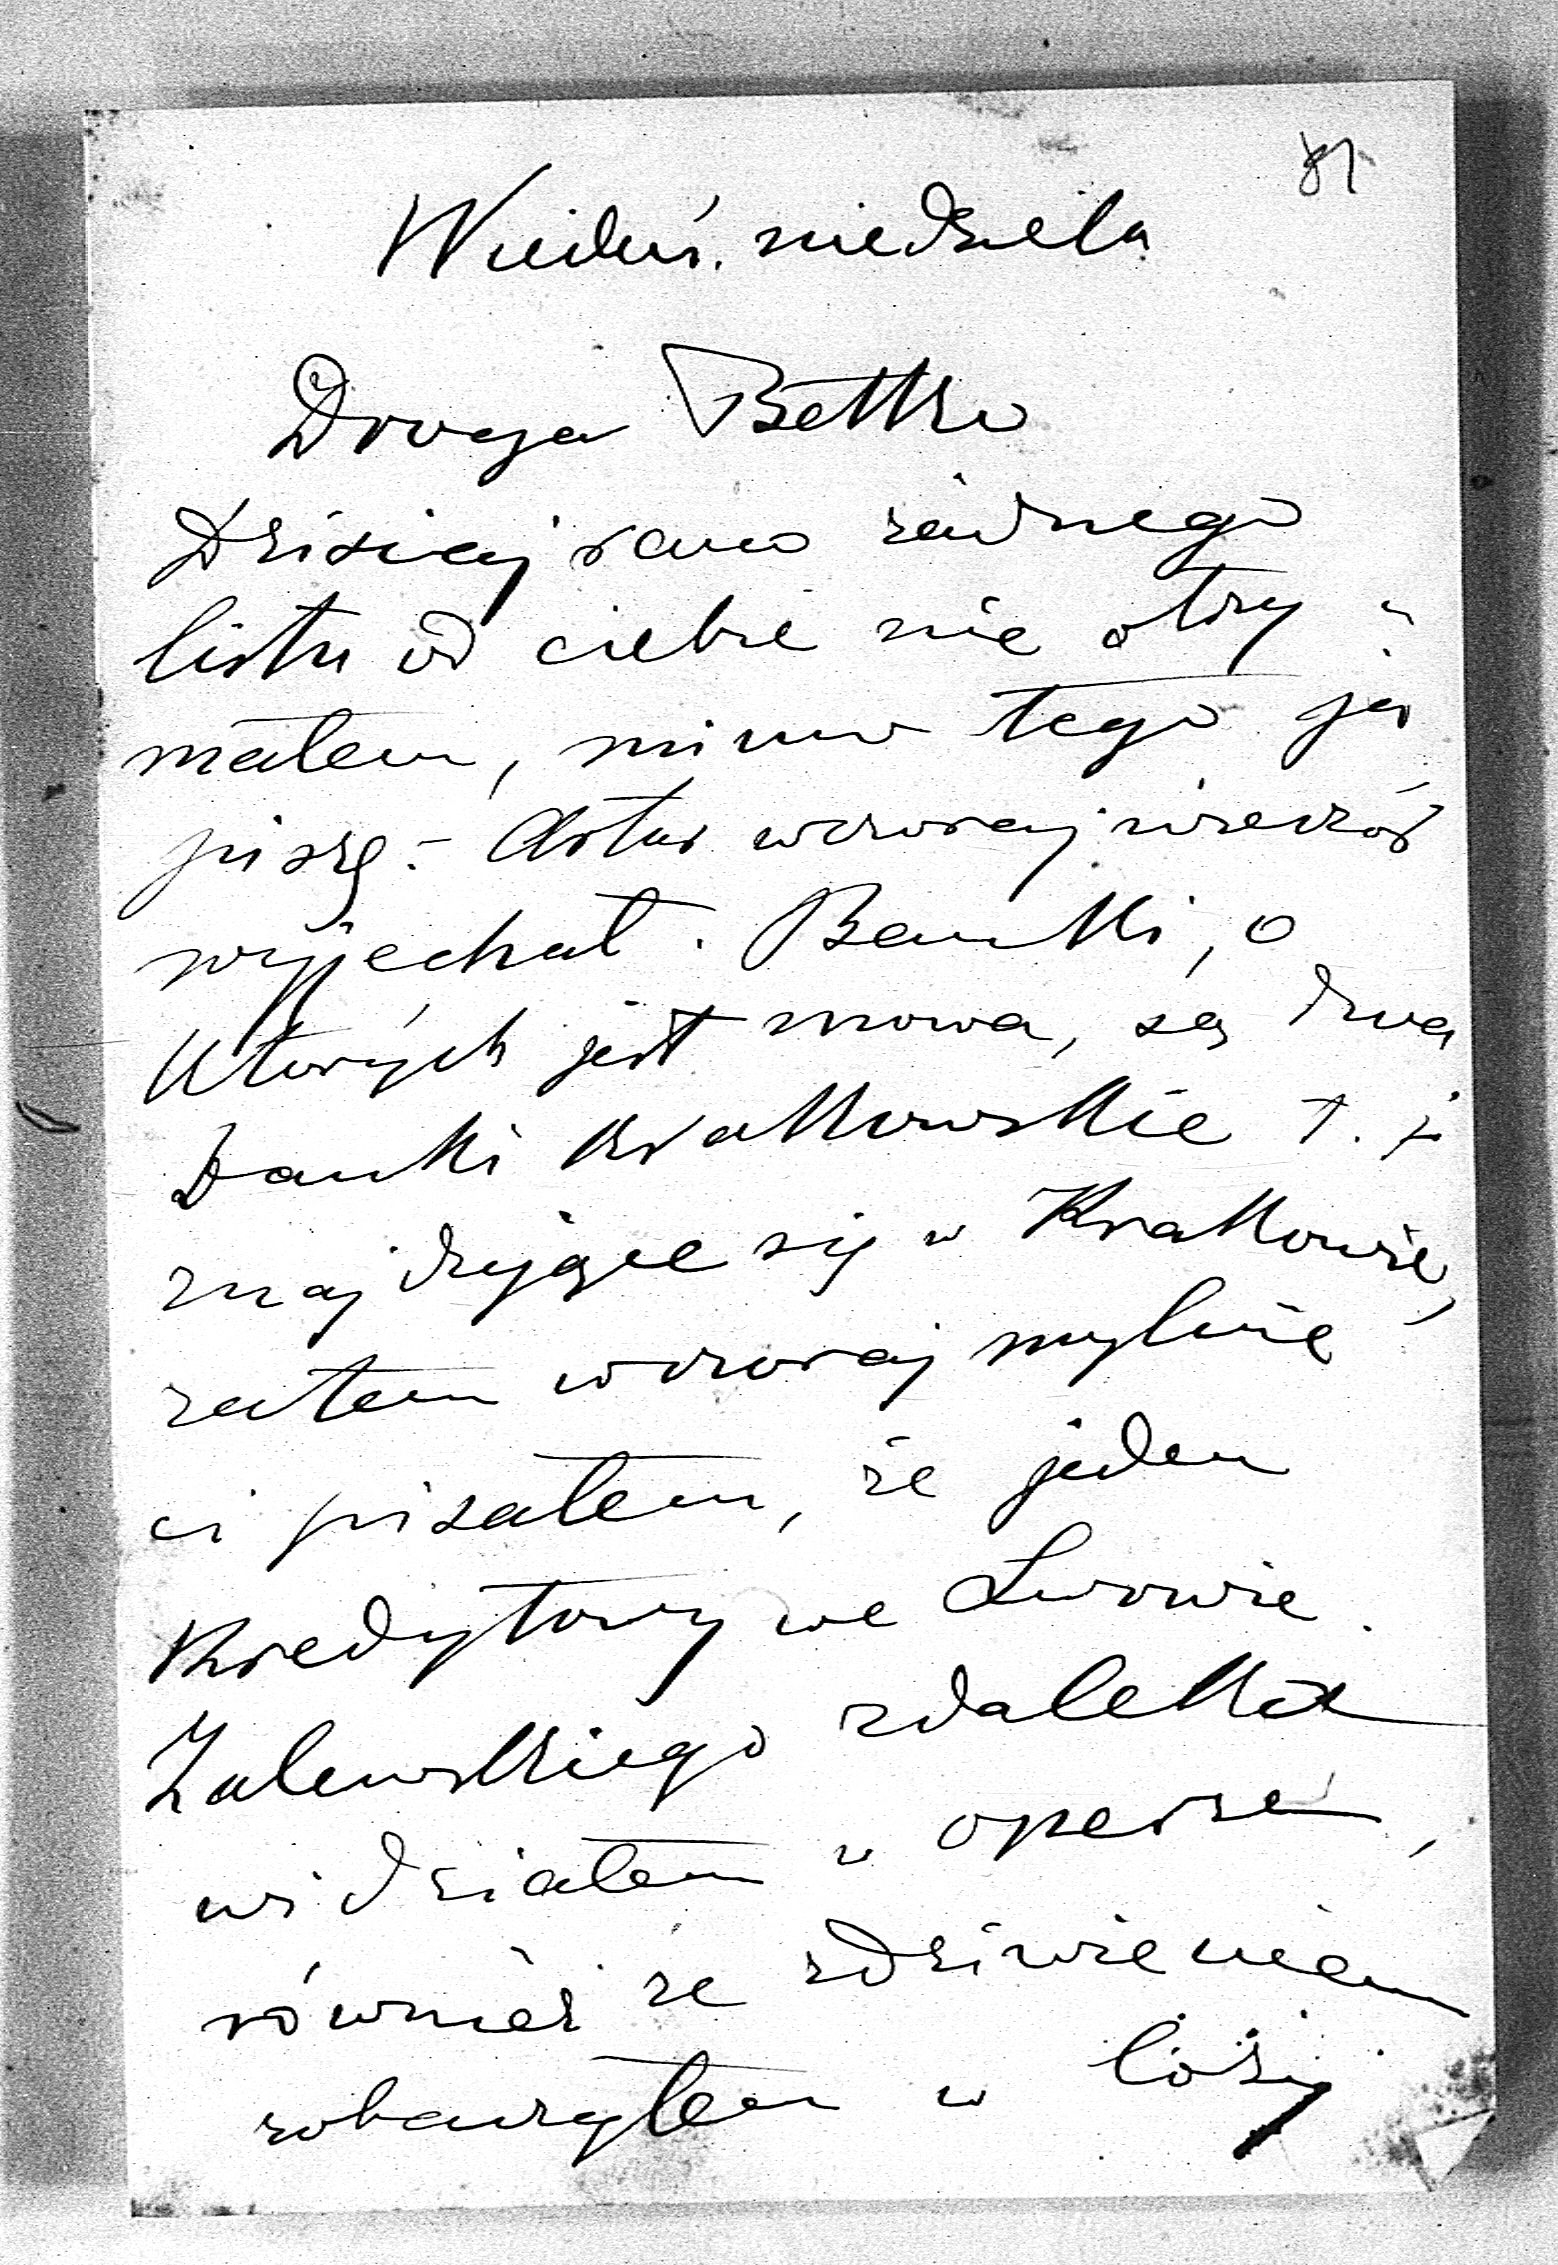 81
Wiedeń. niedziela
Droga Bettko
Dzisiaj rano żadnego
listu od ciebie nie otrzy-
małem, mimo tego ja
piszę.- Artur wczoraj wieczór
wyjechał. Banki, o
których jest mowa, są dwa
banki krakowskie t. j.
znajdujące się w Krakowie,
zatem wczoraj mylnie
ci pisałem, że jeden
kredytowy we Lwowie.
Zalewskiego zdaleka
widziałem w operze,
również ze zdziwieniem
zobaczyłem w loży